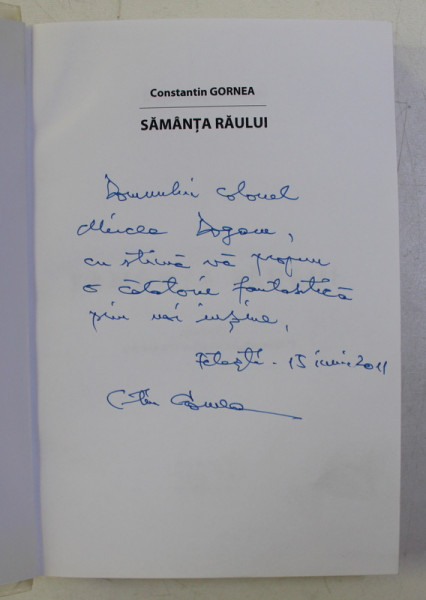 Constantin GORNEA
SĂMÂNȚA RĂULUI
Domnului colonel
Mircea Dogaru,
cu stimă vă propun
o călătorie fantastică
prin noi înșine,
15 iunie 2011